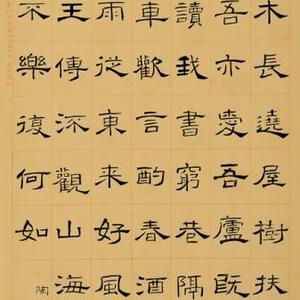 木長遶屋樹扶
吾亦愛吾廬既
讀我書窮巷隔
車歡言酌春酒
雨從東来好風
王傳流觀山海
不樂復何如
陶